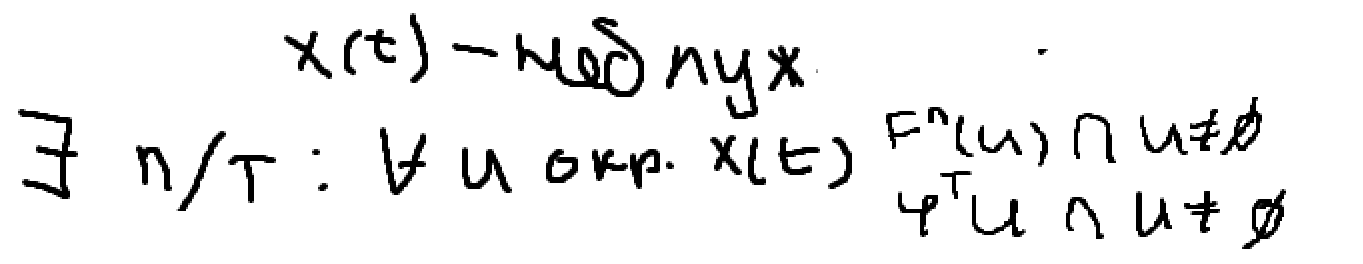 x(t) – неблуж.
∃ n/T : ∀ U окр. x(t) Fⁿ(U) ∩ U ≠ ∅
φᵀU ∩ U ≠ ∅